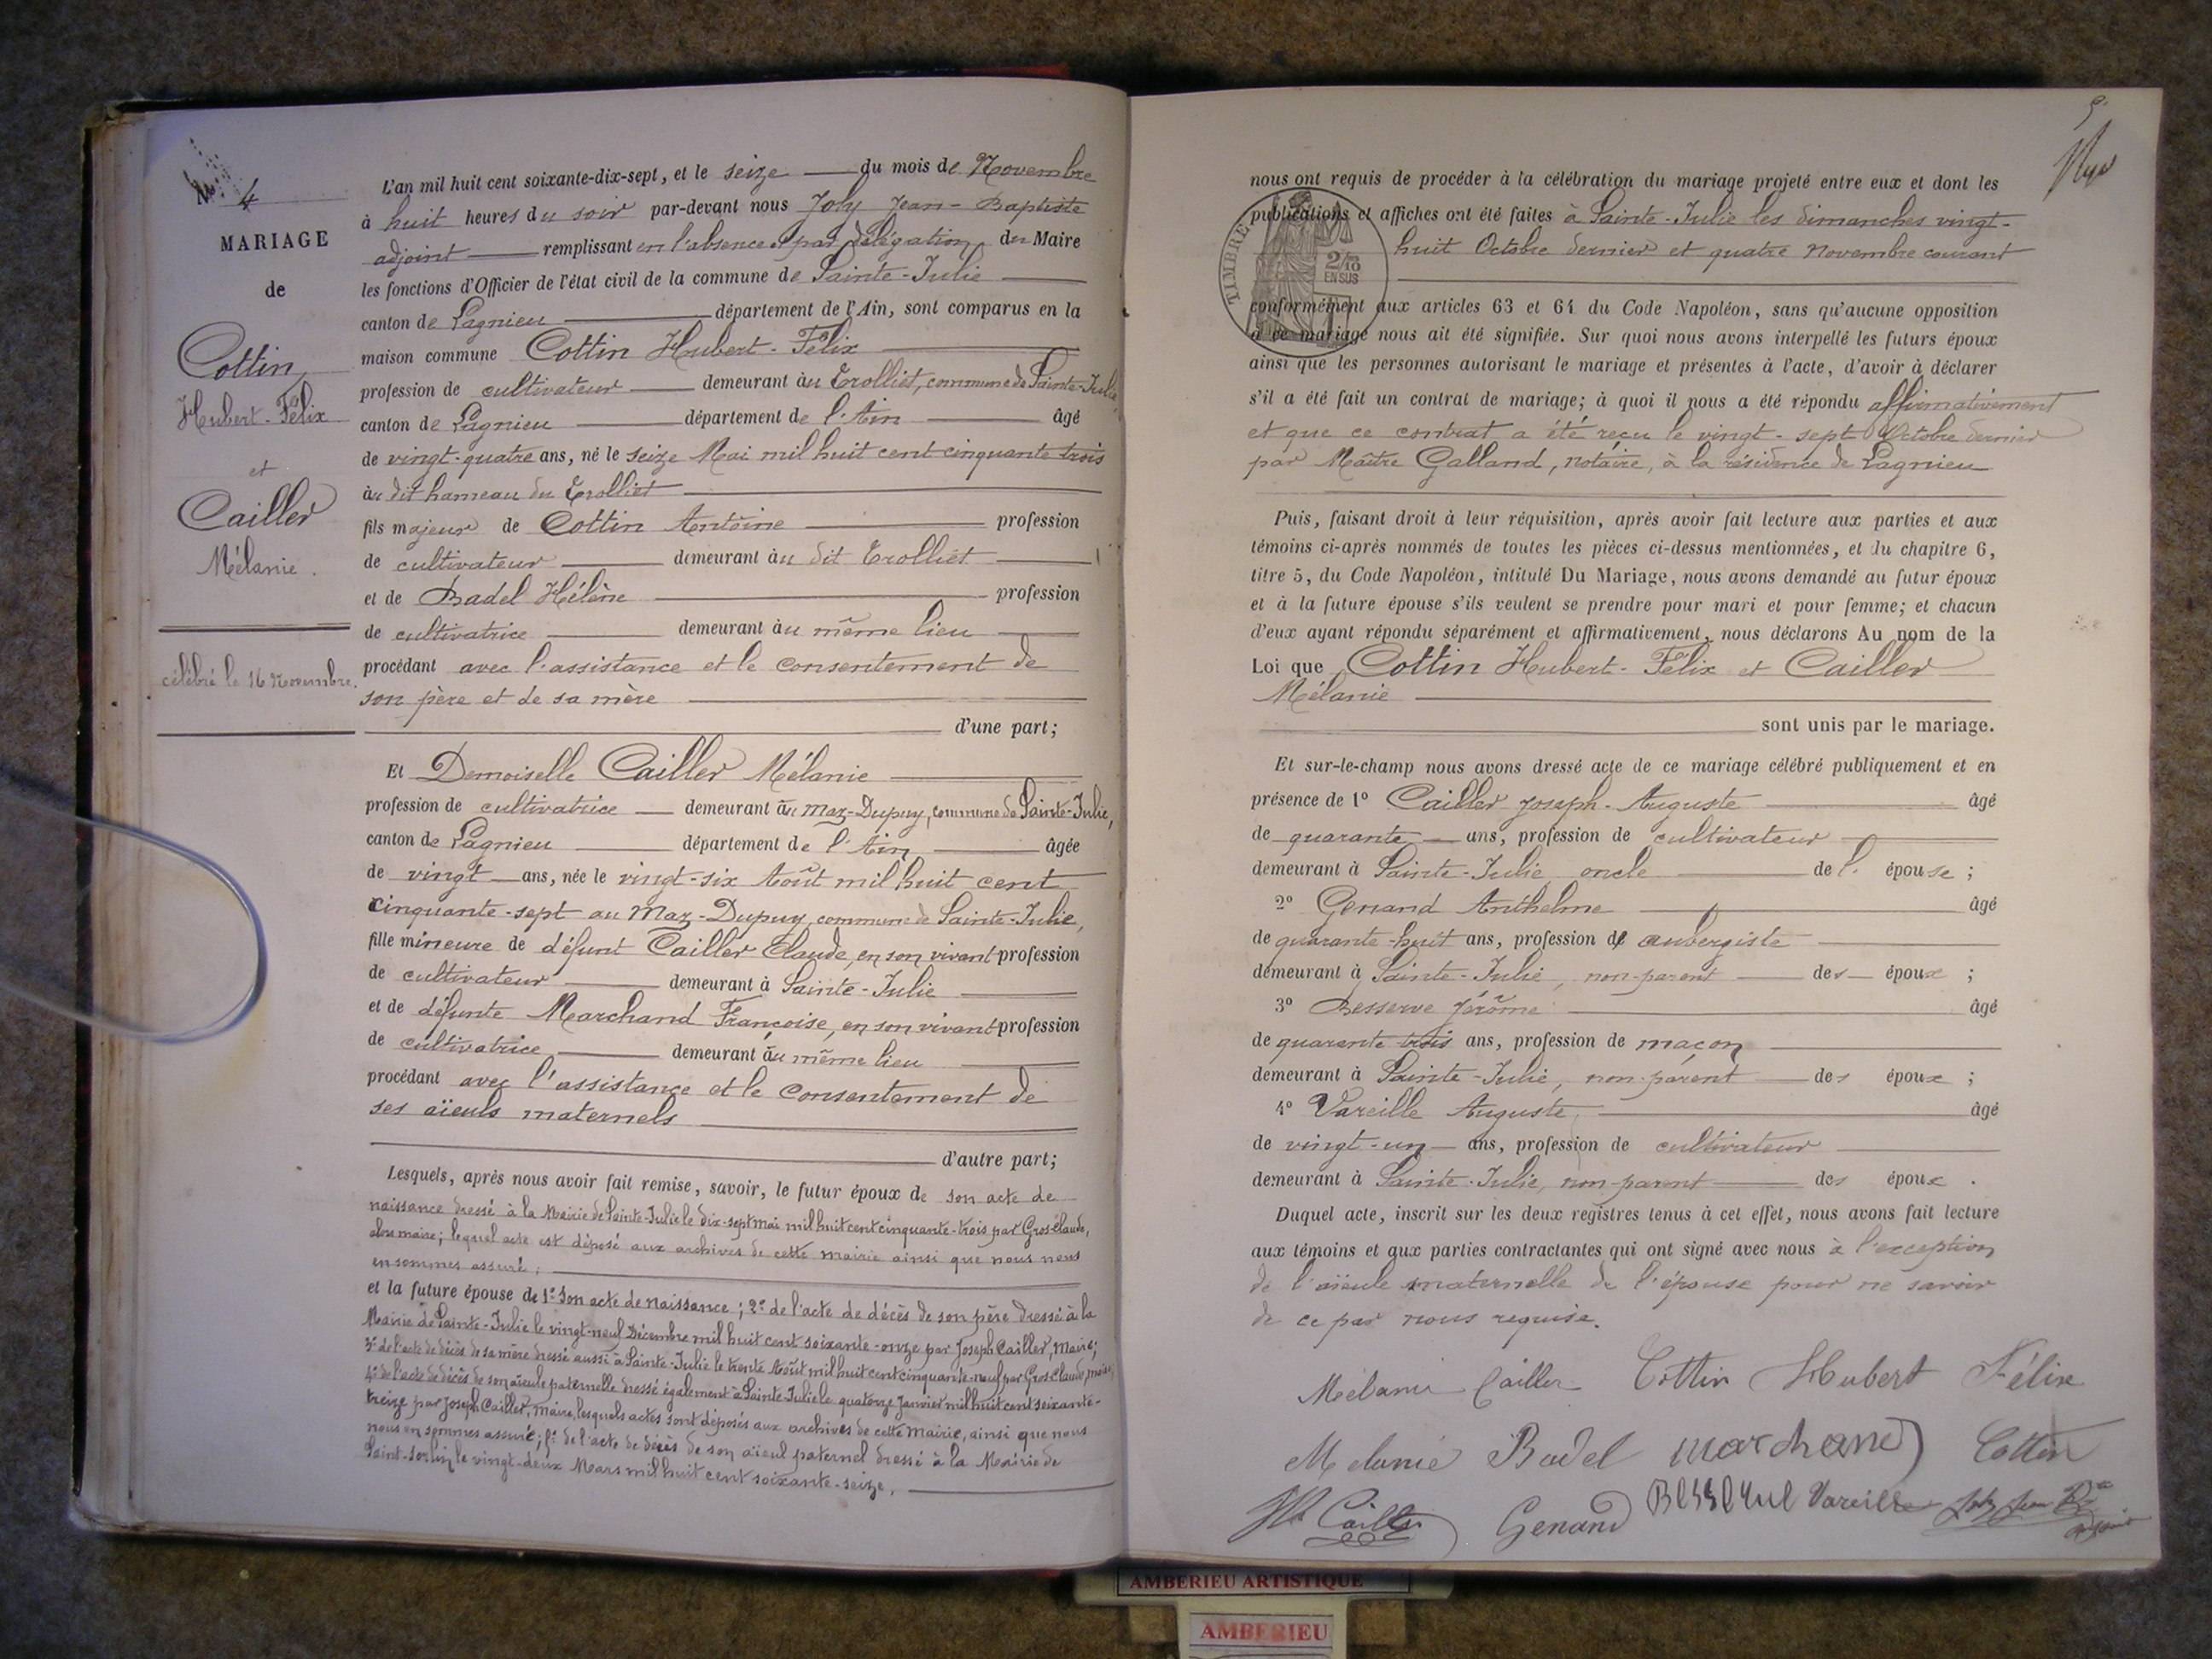 N° 4
MARIAGE
de
Cottin
Hubert-Félix
et
Cailler
Mélanie.
célébré le 16 Novembre.
L'an mil huit cent soixante-dix-sept, et le seize du mois de Novembre
à huit heures du soir par-devant nous Joly Jean-Baptiste
adjoint remplissant en l'absence et par délégation du Maire
les fonctions d'Officier de l'état civil de la commune de Sainte-Julie
canton de Lagnieu département de l'Ain, sont comparus en la
maison commune Cottin Hubert-Félix
profession de cultivateur demeurant au Trolliet, commune de Sainte-Julie
canton de Lagnieu département de l'Ain âgé
de vingt-quatre ans, né le seize Mai mil huit cent cinquante trois
au dit hameau du Trolliet
fils majeur de Cottin Antoine profession
de cultivateur demeurant au dit Trolliet
et de Badel Hélène profession
de cultivatrice demeurant au même lieu
procédant avec l'assistance et le consentement de
son père et de sa mère
d'une part;
Et Demoiselle Cailler Mélanie
profession de cultivatrice demeurant au Maz-Dupuy, commune de Sainte-Julie,
canton de Lagnieu département de l'Ain âgée
de vingt ans, née le vingt-six Août mil huit cent
cinquante-sept au Maz-Dupuy, commune de Sainte-Julie,
fille mineure de défunt Cailler Claude, en son vivant profession
de cultivateur demeurant à Sainte-Julie
et de défunte Marchand Françoise, en son vivant profession
de cultivatrice demeurant au même lieu
procédant avec l'assistance et le consentement de
ses aïeuls maternels
d'autre part;
Lesquels, après nous avoir fait remise, savoir, le futur époux de son acte de
naissance dressé à la Mairie de Sainte-Julie le dix-sept mai mil huit cent cinquante-trois par Gros Claude,
alors maire; lequel acte est déposé aux archives de cette mairie ainsi que nous nous
en sommes assuré;
et la future épouse de 1° Son acte de naissance; 2° de l'acte de décès de son père dressé à la
Mairie de Sainte-Julie le vingt-neuf Décembre mil huit cent soixante-onze par Joseph Cailler, Maire;
3° de l'acte de décès de sa mère dressé aussi à Sainte-Julie le trente Août mil huit cent cinquante-neuf par Gros Claude, maire;
4° de l'acte de décès de son aïeule paternelle dressé également à Sainte-Julie le quatorze Janvier mil huit cent soixante-
treize par Joseph Cailler, Maire, lesquels actes sont déposés aux archives de cette mairie, ainsi que nous
nous en sommes assuré; 5° de l'acte de décès de son aïeul paternel dressé à la Mairie de
Saint-Sorlin le vingt-deux Mars mil huit cent soixante-seize.
5
nous ont requis de procéder à la célébration du mariage projeté entre eux et dont les
publications et affiches ont été faites à Sainte-Julie les dimanches vingt-
huit Octobre dernier et quatre Novembre courant
TIMBRE
2/10
EN SUS
conformément aux articles 63 et 64 du Code Napoléon, sans qu'aucune opposition
à ce mariage nous ait été signifiée. Sur quoi nous avons interpellé les futurs époux
ainsi que les personnes autorisant le mariage et présentes à l'acte, d'avoir à déclarer
s'il a été fait un contrat de mariage; à quoi il nous a été répondu affirmativement
et que ce contrat a été reçu le vingt-sept Octobre dernier
par Maître Galland, notaire, à la résidence de Lagnieu
Puis, faisant droit à leur réquisition, après avoir fait lecture aux parties et aux
témoins ci-après nommés de toutes les pièces ci-dessus mentionnées, et du chapitre 6,
titre 5, du Code Napoléon, intitulé Du Mariage, nous avons demandé au futur époux
et à la future épouse s'ils veulent se prendre pour mari et pour femme; et chacun
d'eux ayant répondu séparément et affirmativement, nous déclarons Au nom de la
Loi que Cottin Hubert-Félix et Cailler
Mélanie
sont unis par le mariage.
Et sur-le-champ nous avons dressé acte de ce mariage célébré publiquement et en
présence de 1° Cailler Joseph-Auguste âgé
de quarante ans, profession de cultivateur
demeurant à Sainte-Julie oncle de l'épouse;
2° Genand Anthelme âgé
de quarante-huit ans, profession de aubergiste
demeurant à Sainte-Julie, non-parent des époux;
3° Besserve Jérôme âgé
de quarante trois ans, profession de maçon
demeurant à Sainte-Julie, non-parent des époux;
4° Vareille Auguste âgé
de vingt-un ans, profession de cultivateur
demeurant à Sainte-Julie, non-parent des époux.
Duquel acte, inscrit sur les deux registres tenus à cet effet, nous avons fait lecture
aux témoins et aux parties contractantes qui ont signé avec nous à l'exception
de l'aïeule maternelle de l'épouse pour ne savoir
de ce par nous requise.
Mélanie Cailler Cottin Hubert Félix
Melanie Badel Marchand Cottin
Cailler Genand Besserve Vareille Joly Jean Bte
adjoint
AMBERIEU ARTISTIQUE
AMBERIEU